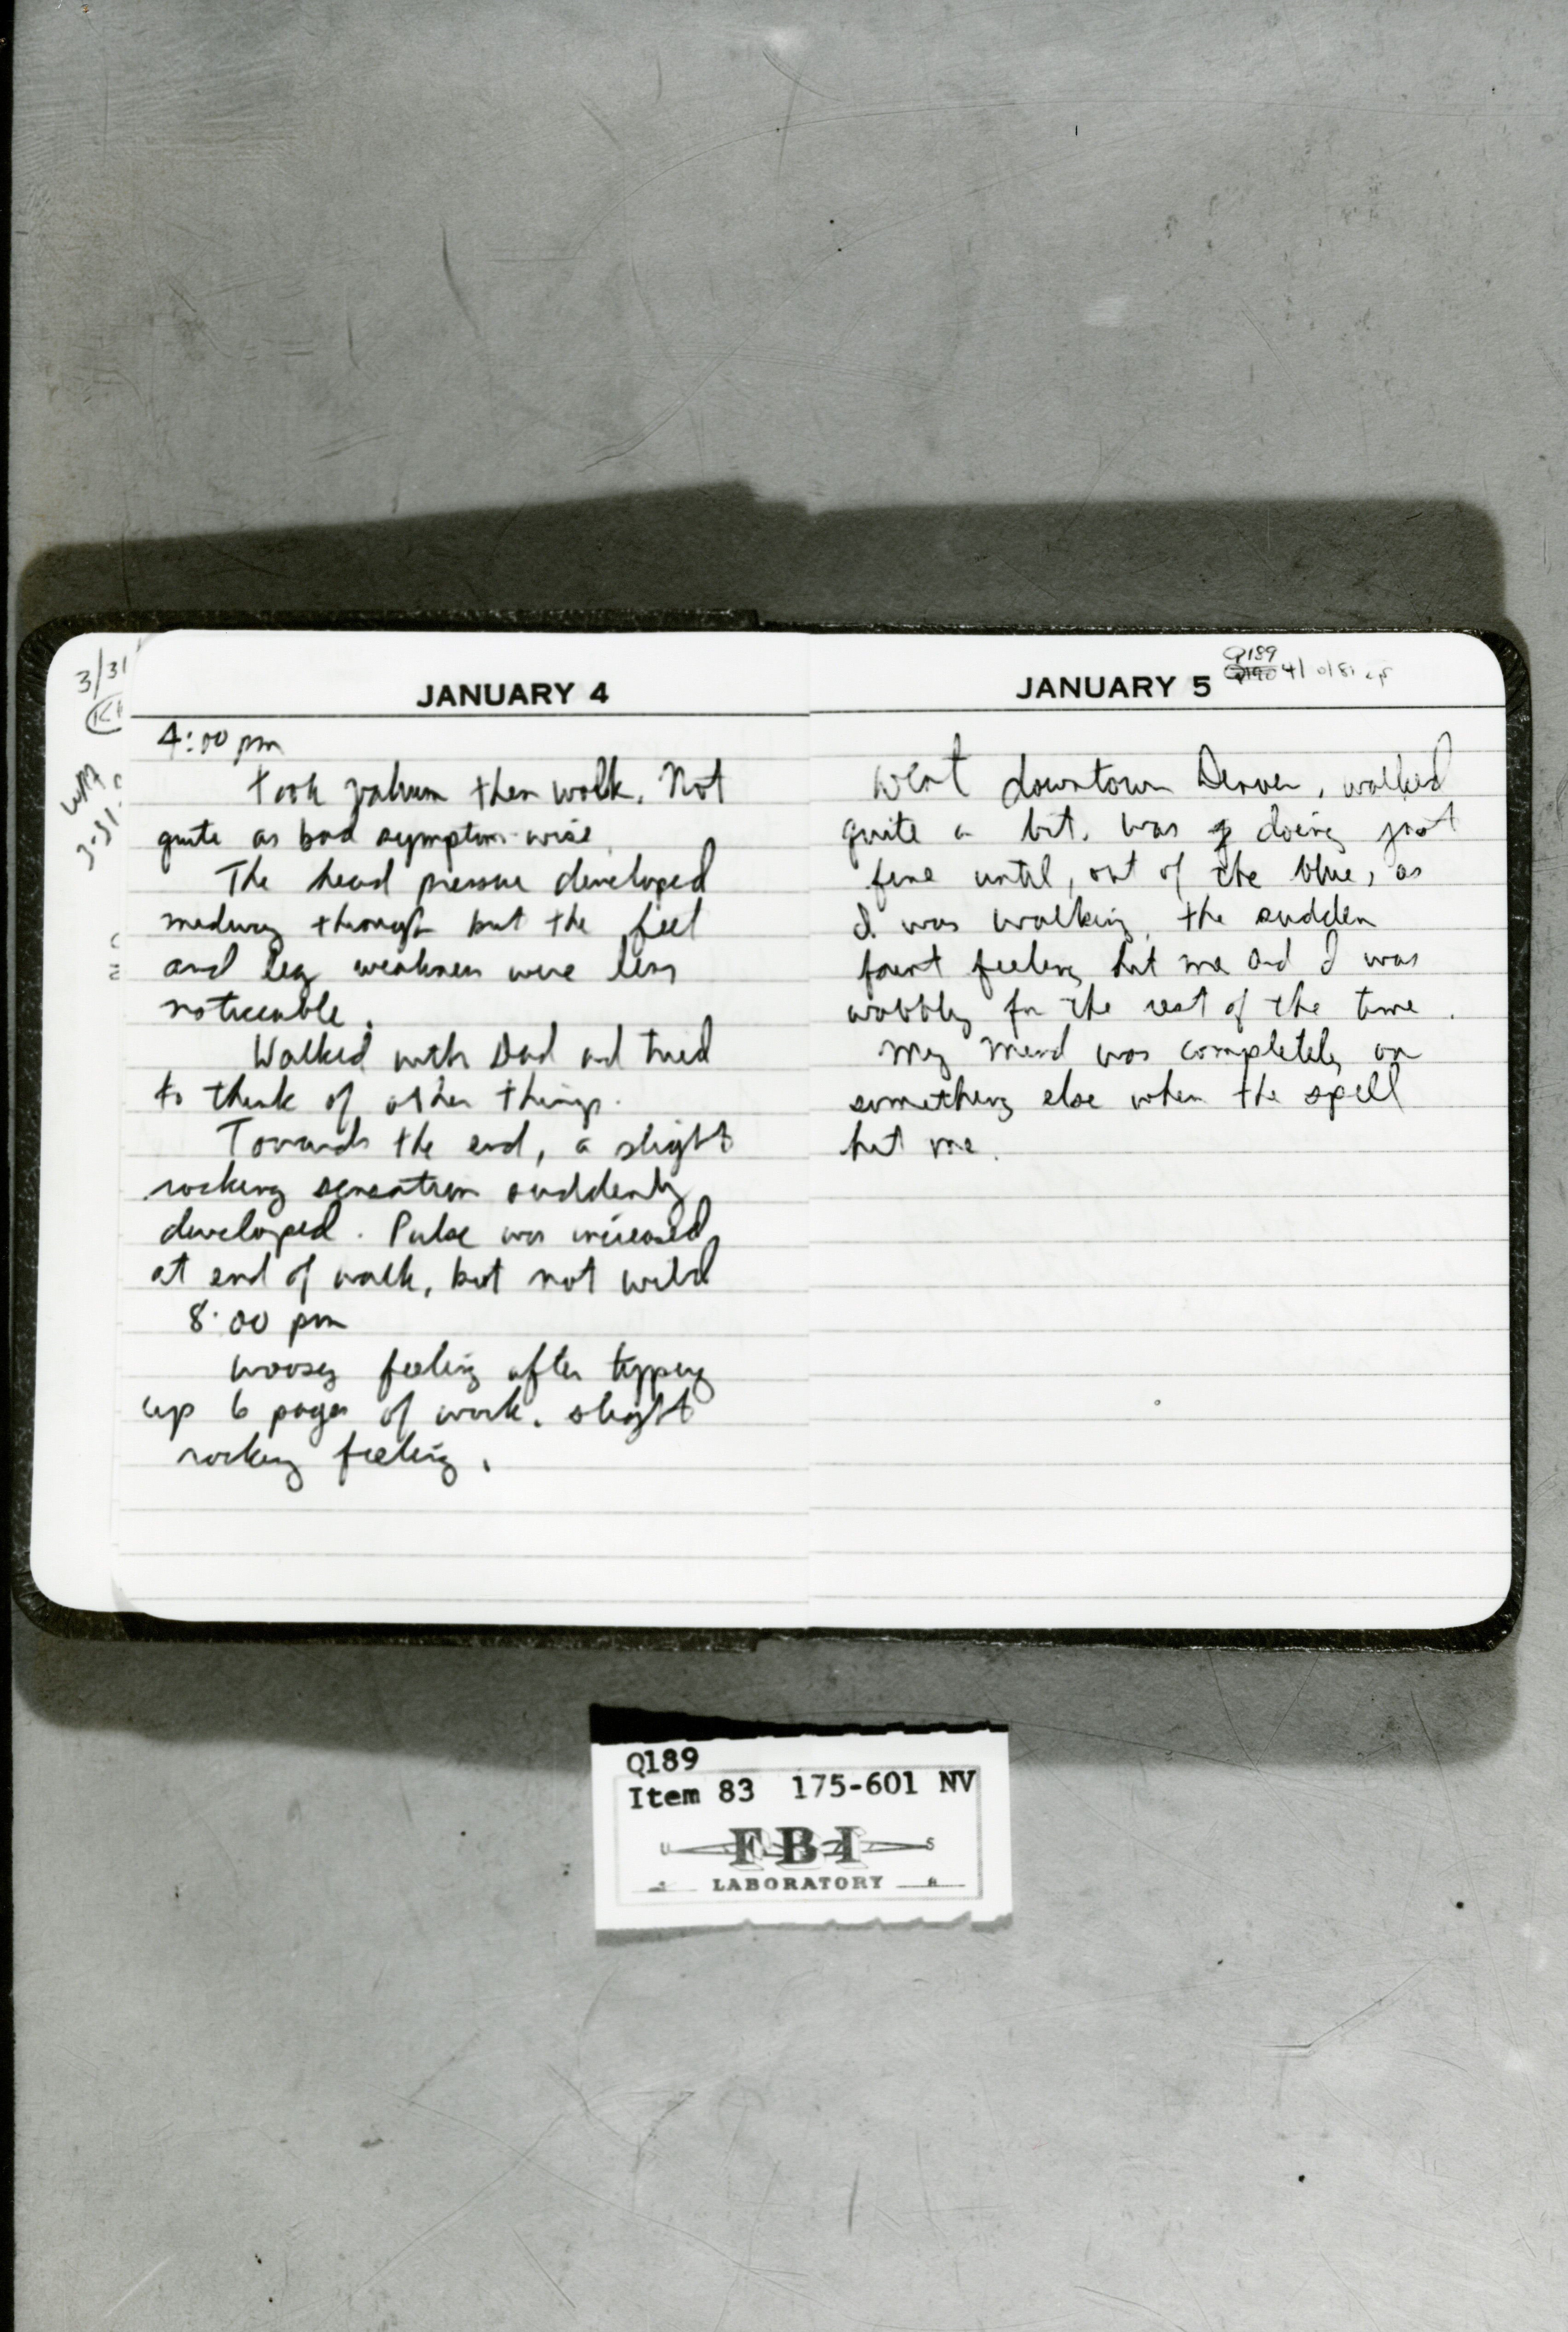 3/31
WM
3-31-
JANUARY 4
4:00 pm
Took valium then walk. Not
quite as bad symptom-wise.
The head pressure developed
midway through but the feel
and leg weakness were less
noticeable.
Walked with Dad and tried
to think of other things.
Towards the end, a slight
rocking sensation suddenly
developed. Pulse was increased
at end of walk, but not wild
8:00 pm
woosy feeling after typing
up 6 pages of work. slight
rocking feeling.
JANUARY 5
Q189
Q190 4/
Went downtown Denver, walked
quite a bit. Was doing just
fine until, out of the blue, as
I was walking, the sudden
faint feeling hit me and I was
wobbly for the rest of the time.
My mind was completely on
something else when the spell
hit me.
Q189
Item 83 175-601 NV
U FBI S
LABORATORY